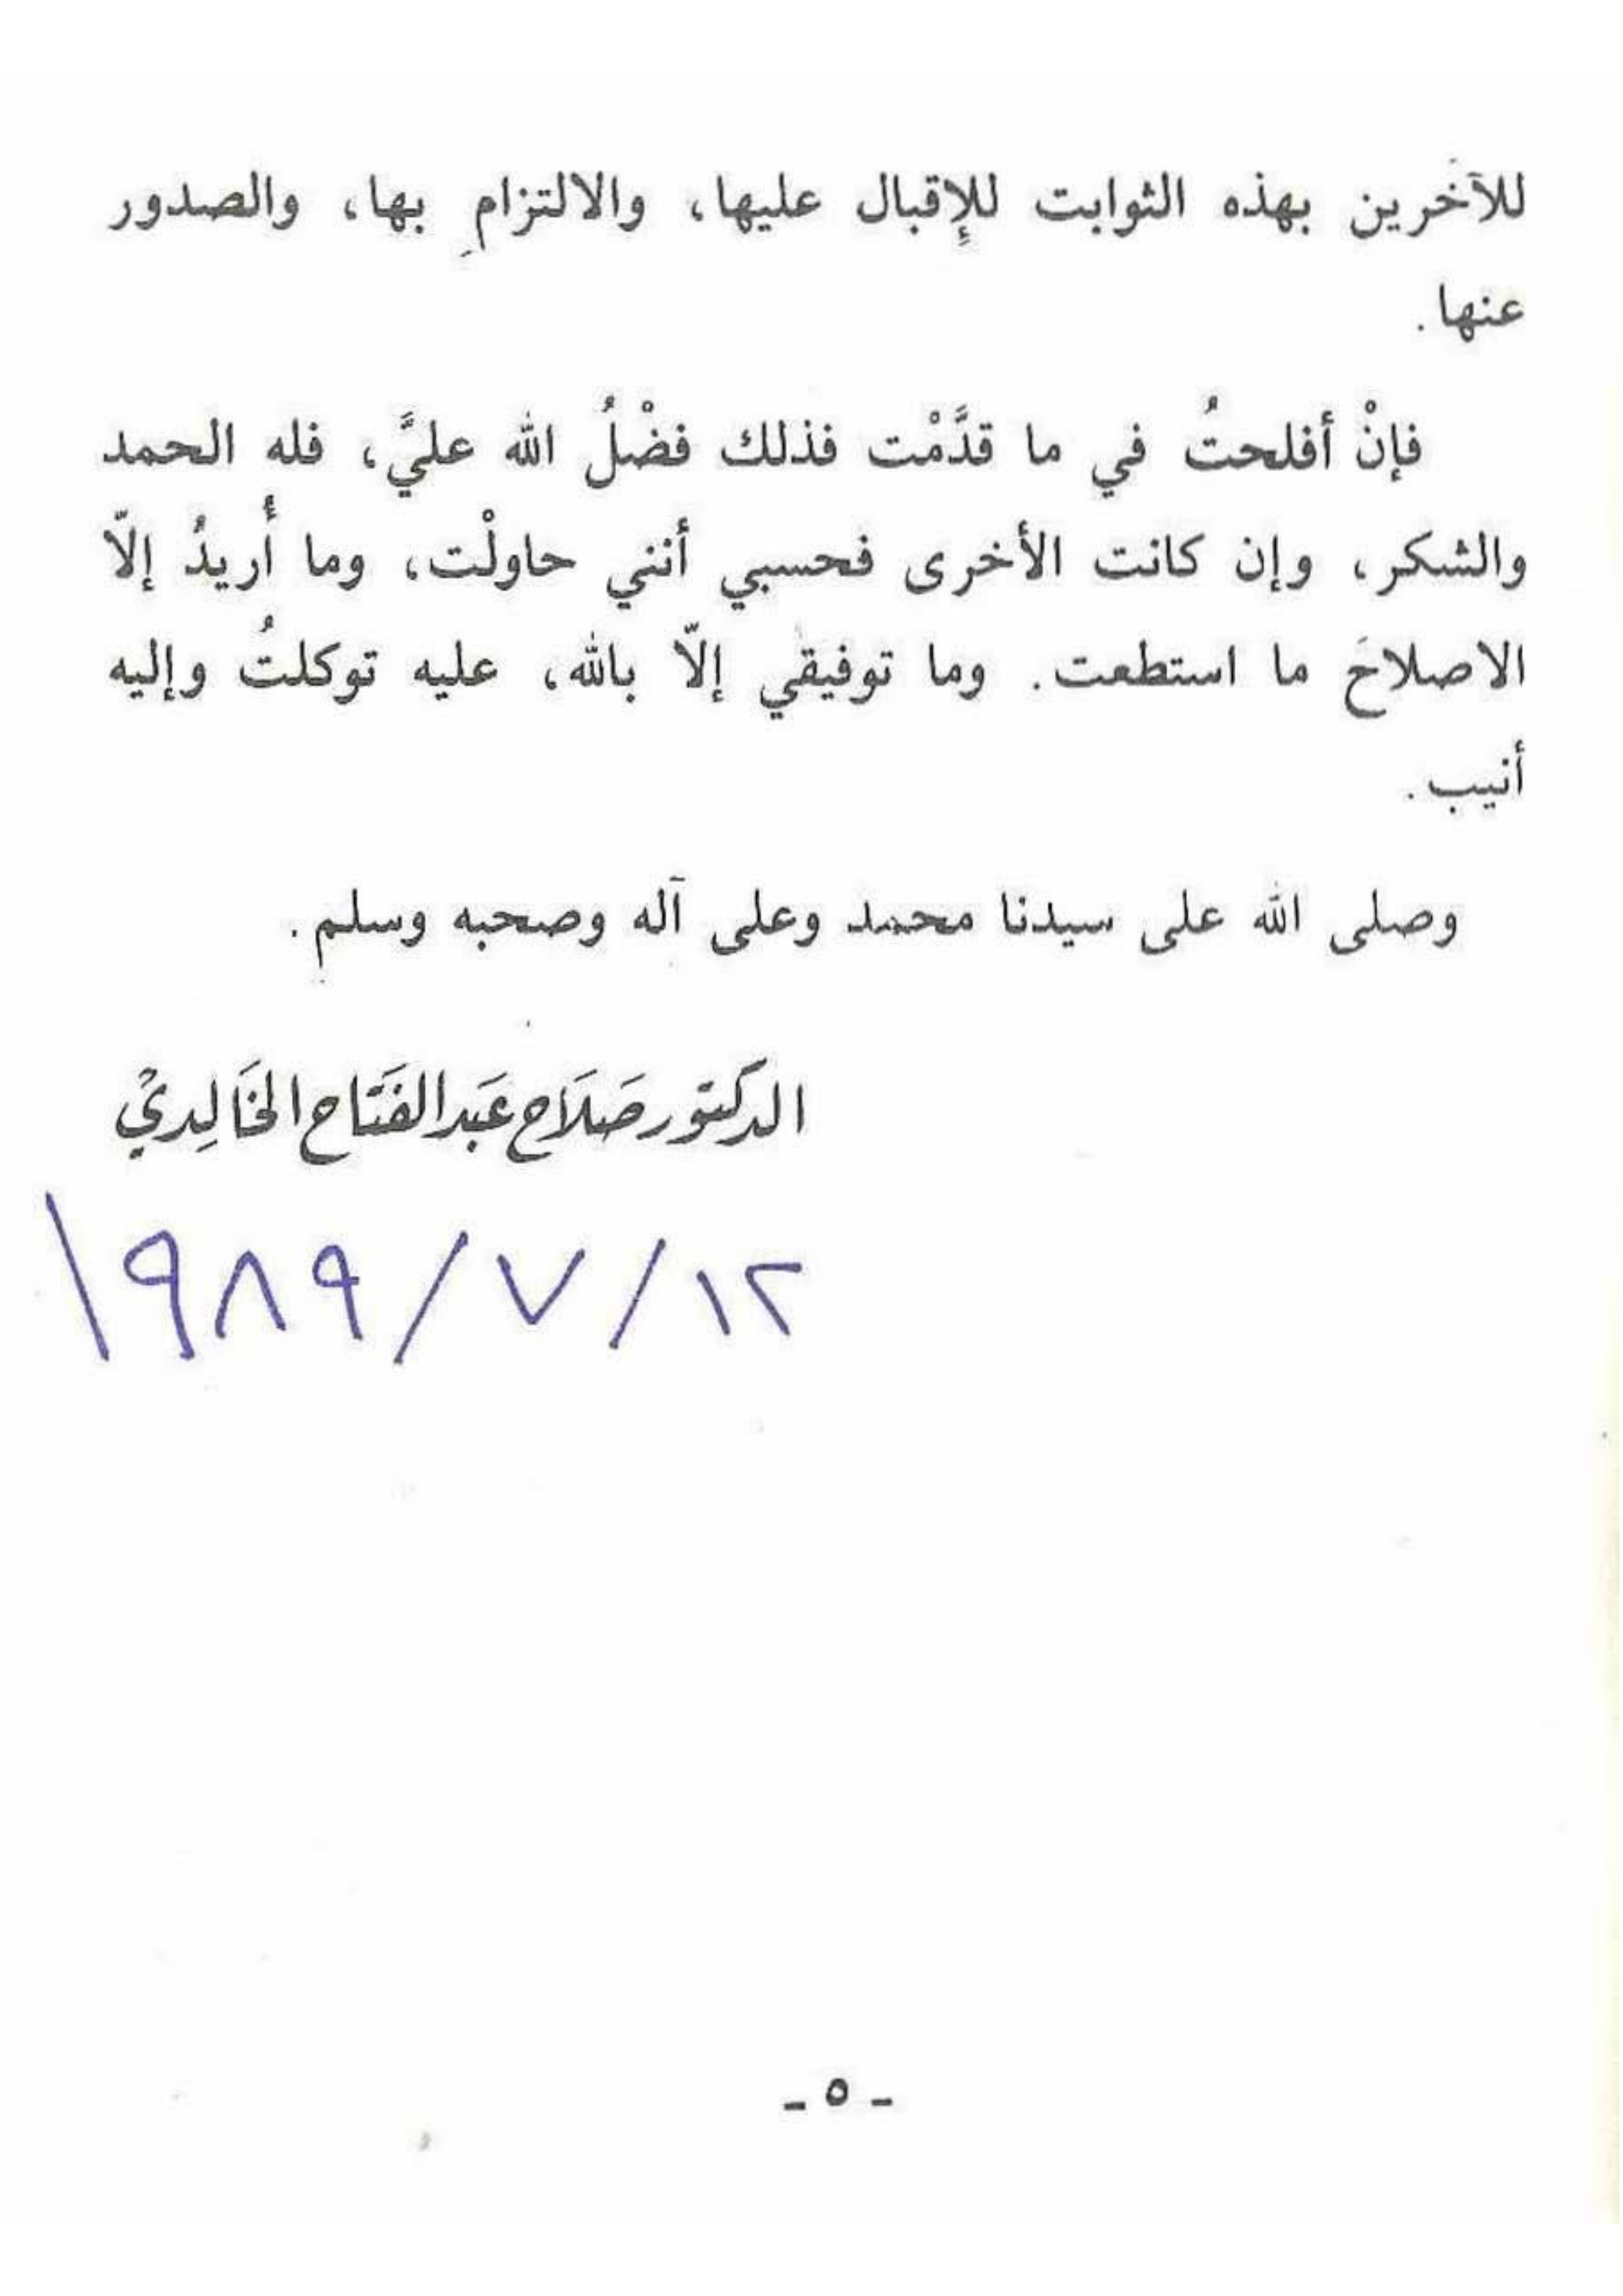 للآخرين بهذه الثوابت للإِقبال عليها، والالتزامِ بها، والصدور
عنها.
فإنْ أفلحتُ في ما قدَّمْت فذلك فضْلُ الله عليَّ، فله الحمد
والشكر، وإن كانت الأخرى فحسبي أنني حاولْت، وما أُريدُ إلاّ
الاصلاحَ ما استطعت. وما توفيقي إلاّ بالله، عليه توكلتُ وإليه
أنيب.
وصلى الله على سيدنا محمد وعلى آله وصحبه وسلم.
الدكتور صَلَاح عَبد الفَتَّاح الخَالِديْ
١٢/٧/١٩٨٩
- ٥ -